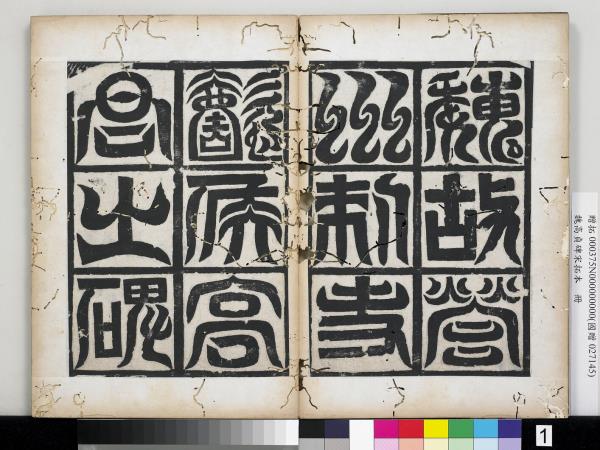 魏故營
州刺史
懿侯高
君之碑
贈拓 000375N000000000(國贈 027145)
魏高貞碑宋拓本 冊
1